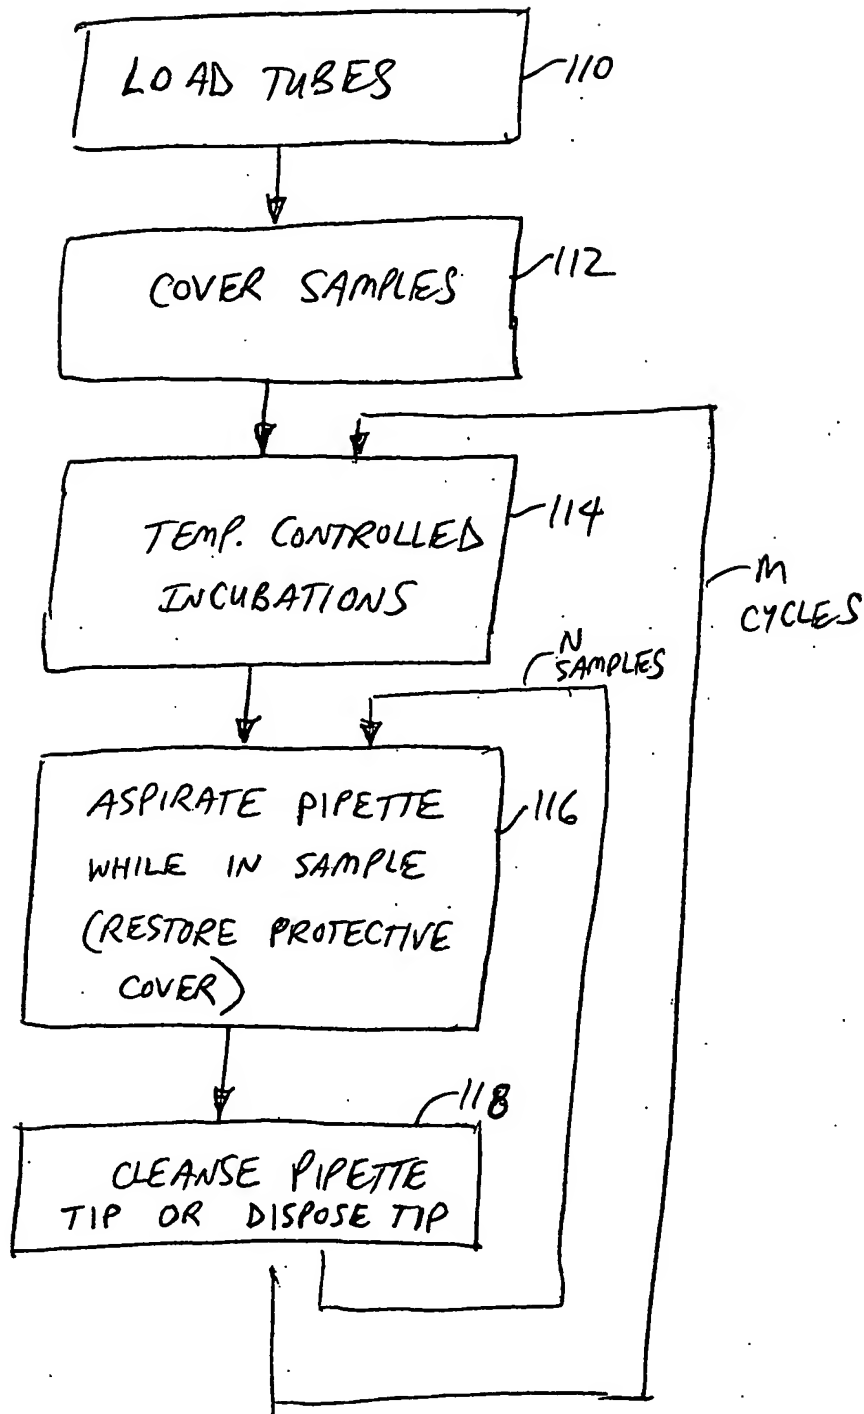 LOAD TUBES
110
COVER SAMPLES
112
TEMP. CONTROLLED
INCUBATIONS
114
M
CYCLES
N
SAMPLES
ASPIRATE PIPETTE
WHILE IN SAMPLE
(RESTORE PROTECTIVE
COVER)
116
118
CLEANSE PIPETTE
TIP OR DISPOSE TIP